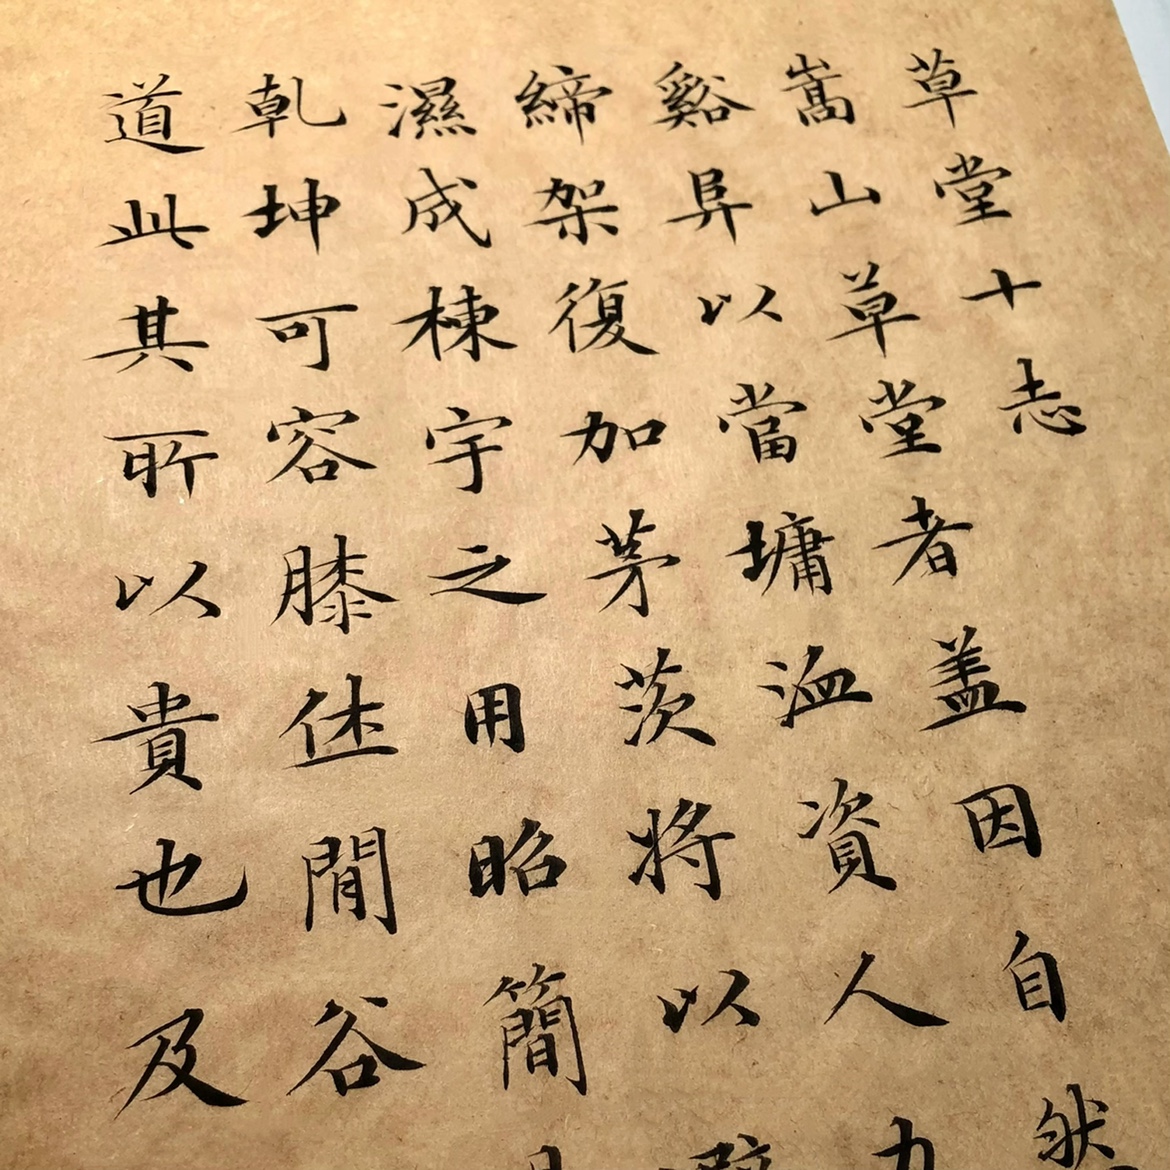 草堂十志
嵩山草堂者盖因自然
谿阜以當墉洫資人力
締架復加茅茨將以
濕成棟宇之用昭簡
乾坤可容膝休閒谷
道此其所以貴也及